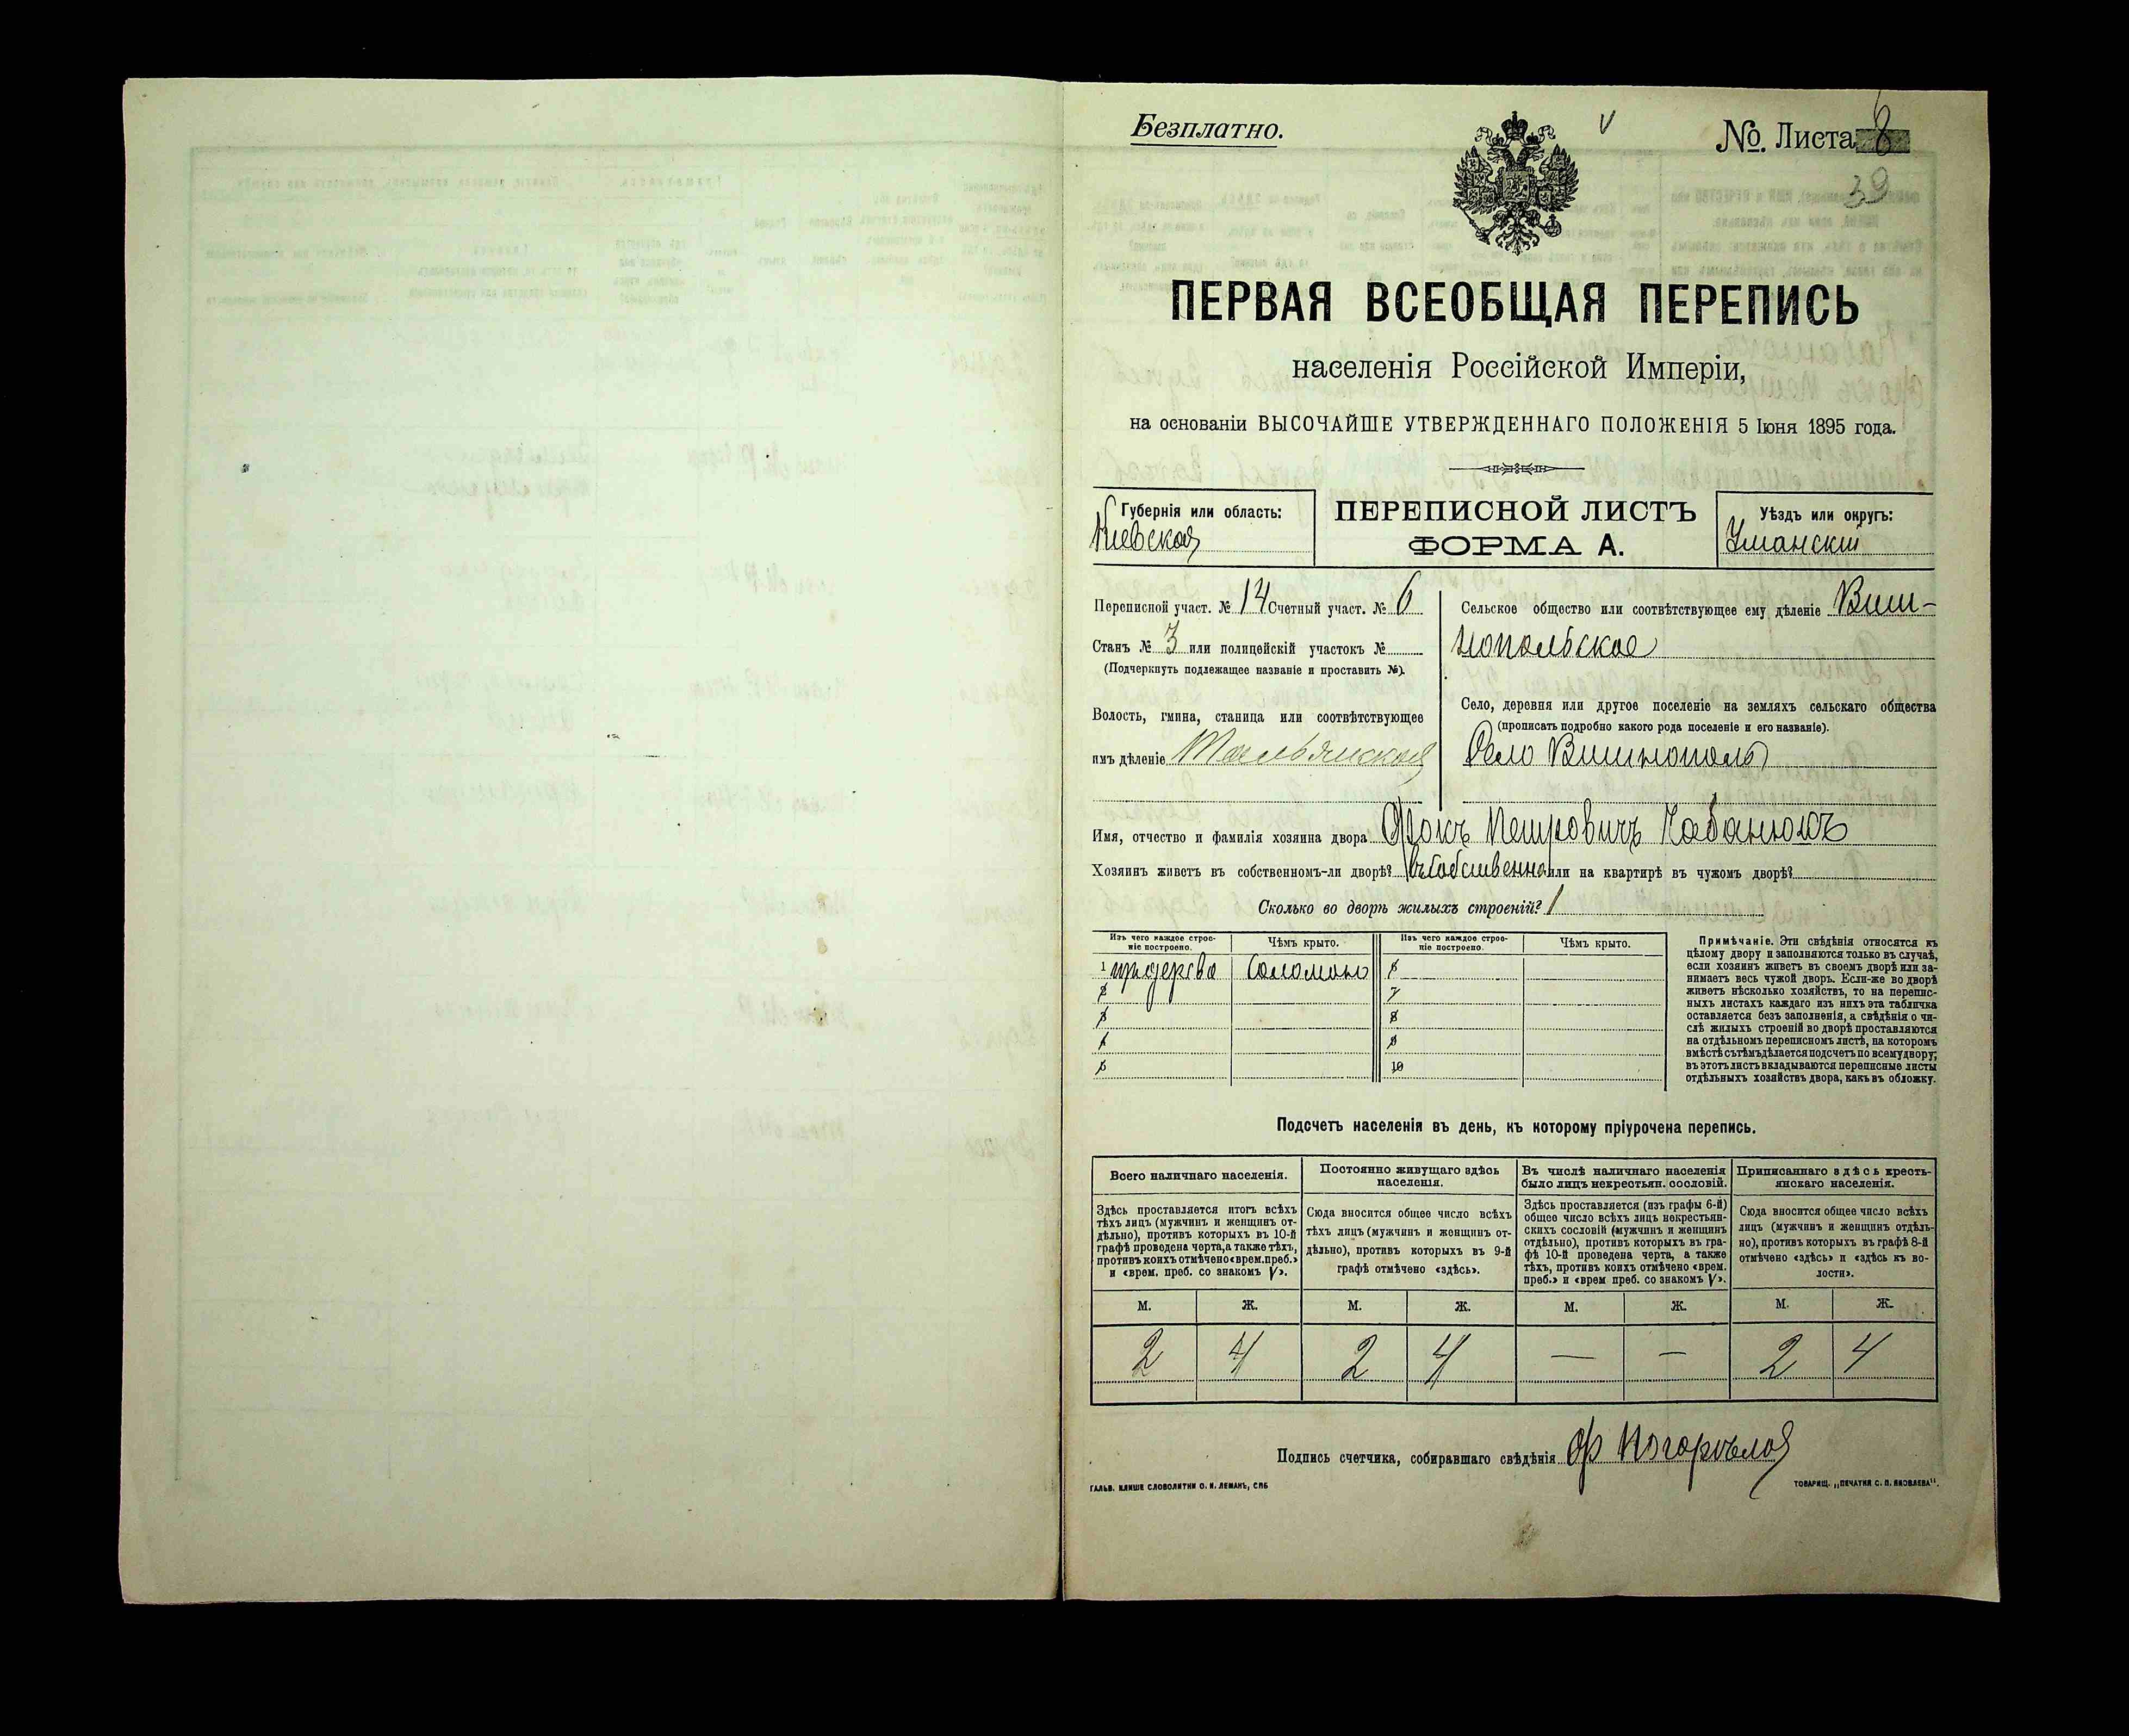 Безплатно.
№ Листа 8
39
ПЕРВАЯ ВСЕОБЩАЯ ПЕРЕПИСЬ
населенія Россійской Имперіи,
на основаніи ВЫСОЧАЙШЕ УТВЕРЖДЕННАГО ПОЛОЖЕНІЯ 5 Іюня 1895 года.
Губернія или область:
Кіевская
ПЕРЕПИСНОЙ ЛИСТЪ
ФОРМА А.
Уѣздъ или округъ:
Уманскій
Переписной участ. № 14 Счетный участ. № 6
Станъ № 3 или полицейскій участокъ №
(Подчеркнуть подлежащее названіе и проставить №).
Волость, гмина, станица или соотвѣтствующее
имъ дѣленіе Тальянская
Сельское общество или соотвѣтствующее ему дѣленіе Виш-
нопольское
Село, деревня или другое поселеніе на земляхъ сельскаго общества
(прописать подробно какого рода поселеніе и его названіе).
Село Вишнополь
Имя, отчество и фамилія хозяина двора Фокъ Петровичъ Чабанюкъ
Хозяинъ живетъ въ собственномъ-ли дворѣ? въ собственно или на квартирѣ въ чужомъ дворѣ?
Сколько во дворѣ жилыхъ строеній? 1
Изъ чего каждое строе-
ніе построено.
Чѣмъ крыто.
Изъ чего каждое строе-
ніе построено.
Чѣмъ крыто.
1 изъ дерева Соломою 6
2 7
3 8
4 9
5 10
Примѣчаніе. Эти свѣдѣнія относятся къ
цѣлому двору и заполняются только въ случаѣ,
если хозяинъ живетъ въ своемъ дворѣ или за-
нимаетъ весь чужой дворъ. Если-же во дворѣ
живетъ нѣсколько хозяйствъ, то на перепис-
ныхъ листахъ каждаго изъ нихъ эта табличка
оставляется безъ заполненія, а свѣдѣнія о чи-
слѣ жилыхъ строеній во дворѣ проставляются
на отдѣльномъ переписномъ листѣ, на которомъ
вмѣстѣ съ тѣмъ дѣлается подсчетъ по всему двору;
въ этотъ листъ вкладываются переписные листы
отдѣльныхъ хозяйствъ двора, какъ въ обложку.
Подсчетъ населенія въ день, къ которому пріурочена перепись.
Всего наличнаго населенія.
Здѣсь проставляется итогъ всѣхъ
тѣхъ лицъ (мужчинъ и женщинъ от-
дѣльно), противъ которыхъ въ 10-й
графѣ проведена черта, а также тѣхъ,
противъ коихъ отмѣчено «врем. преб.»
и «врем. преб. со знакомъ V».
Постоянно живущаго здѣсь
населенія.
Сюда вносится общее число всѣхъ
тѣхъ лицъ (мужчинъ и женщинъ от-
дѣльно), противъ которыхъ въ 9-й
графѣ отмѣчено «здѣсь».
Въ числѣ наличнаго населенія
было лицъ некрестьян. сословій.
Здѣсь проставляется (изъ графы 6-й)
общее число всѣхъ лицъ некрестьян-
скихъ сословій (мужчинъ и женщинъ
отдѣльно), противъ которыхъ въ гра-
фѣ 10-й проведена черта, а также
тѣхъ, противъ коихъ отмѣчено «врем.
преб.» и «врем преб. со знакомъ V».
Приписаннаго здѣсь кресть-
янскаго населенія.
Сюда вносится общее число всѣхъ
лицъ (мужчинъ и женщинъ отдѣль-
но), противъ которыхъ въ графѣ 8-й
отмѣчено «здѣсь» и «здѣсь къ во-
лости».
М. Ж. М. Ж. М. Ж. М. Ж.
2 4 2 4 — — 2 4
Подпись счетчика, собиравшаго свѣдѣнія
ГАЛЬВ. КЛИШЕ СЛОВОЛИТНИ О. И. ЛЕМАНЪ, СПБ
ТОВАРИЩ. „ПЕЧАТНЯ С. П. ЯКОВЛЕВА“.